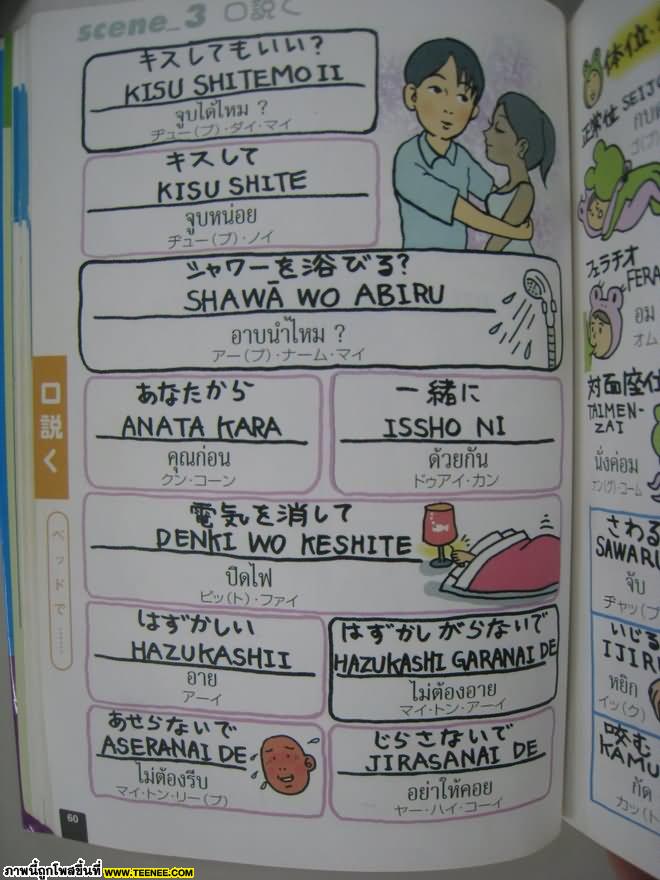 scene_3 口説く
キスしてもいい?
KISU SHITEMO II
จูบได้ไหม ?
ヂュー(プ)・ダイ・マイ
キスして
KISU SHITE
จูบหน่อย
ヂュー(プ)・ノイ
シャワーを浴びる?
SHAWĀ WO ABIRU
อาบน้ำไหม ?
アー(プ)・ナーム・マイ
あなたから
ANATA KARA
คุณก่อน
クン・コーン
一緒に
ISSHO NI
ด้วยกัน
ドゥアイ・カン
電気を消して
DENKI WO KESHITE
ปิดไฟ
ピッ(ト)・ファイ
はずかしい
HAZUKASHII
อาย
アーイ
はずかしがらないで
HAZUKASHI GARANAI DE
ไม่ต้องอาย
マイ・トン・アーイ
あせらないで
ASERANAI DE
ไม่ต้องรีบ
マイ・トン・リー(プ)
じらさないで
JIRASANAI DE
อย่าให้คอย
ヤー・ハイ・コーイ
口説く
ベッドで……
60
体位
正常位 SEIJO
フェラチオ
FERA
อม
オム
対面座位
TAIMEN-
ZAI
นั่งค่อม
ナン(グ)・コーム
さわる
SAWARU
จับ
ヂャッ(プ)
いじる
IJIRU
หยิก
イッ(ク)
咬む
KAMU
กัด
カッ(ト)
ภาพนี้ถูกโพสขึ้นที่ WWW.TEENEE.COM